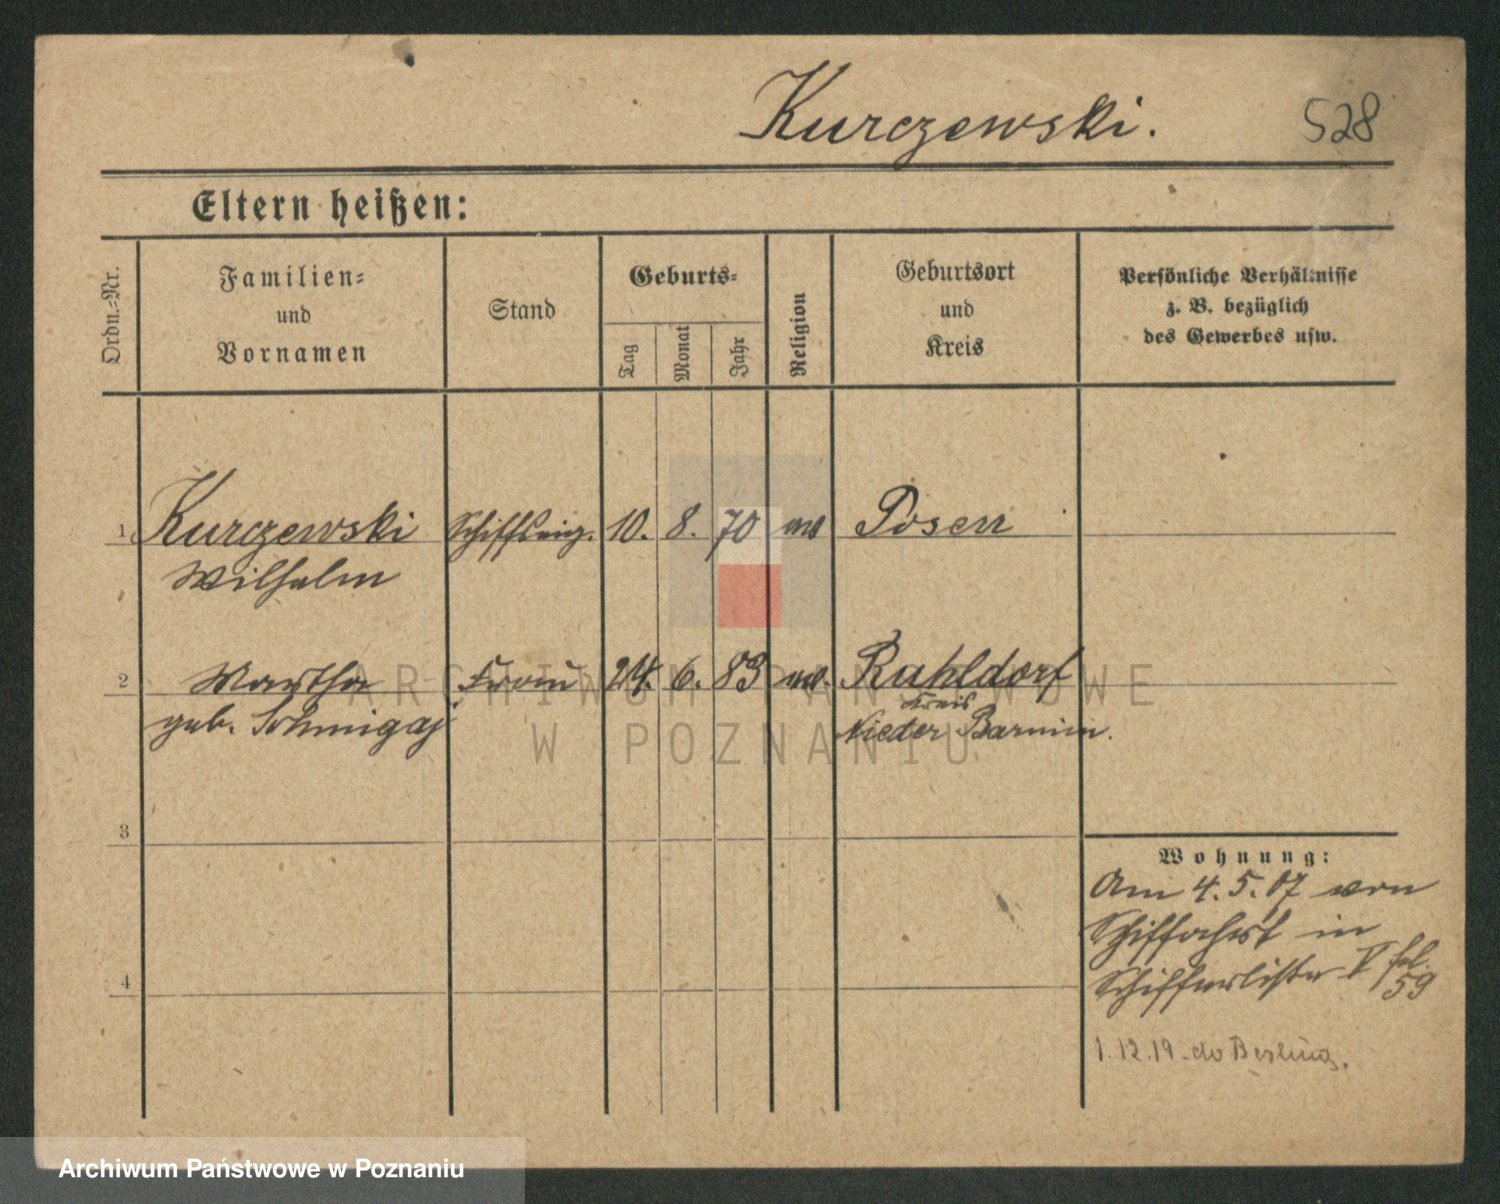 Kurczewski.
528
Eltern heißen:
Ordn.=Nr.
Familien=
und
Vornamen
Stand
Geburts=
Tag
Monat
Jahr
Religion
Geburtsort
und
Kreis
Persönliche Verhältnisse
z. B. bezüglich
des Gewerbes usw.
1 Kurczewski Schiffseig. 10. 8. 70 Posen
Wilhelm
2 Martha Frau 24. 6. 83 Ruhldorf
geb. Kreis
Nieder Barnim.
3
4
Wohnung:
Am 4. 5. 07 von
Schiffahrt in
Schifferliste V fol.
59
1. 12. 19
ARCHIWUM PAŃSTWOWE
W POZNANIU
Archiwum Państwowe w Poznaniu